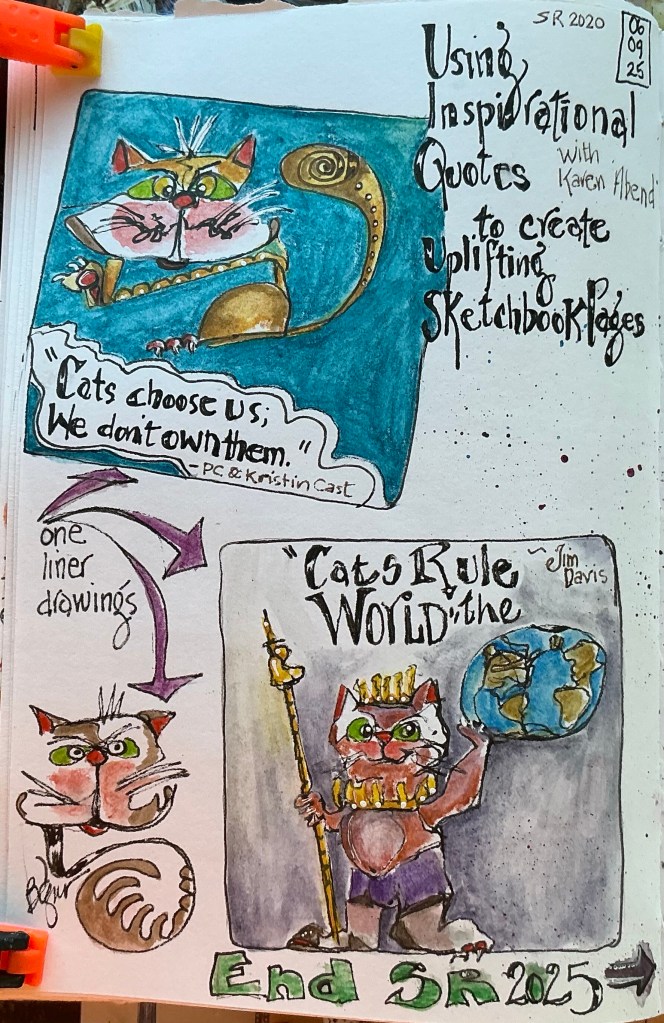 SR 2020
06
09
25
Using
Inspirational
Quotes
with
Karen Abend
to create
Uplifting
Sketchbook Pages
"Cats choose us;
We don't own them."
- PC & Kristin Cast
one
liner
drawings
"Cats Rule
the
World"
~Jim
Davis
End SR 2025